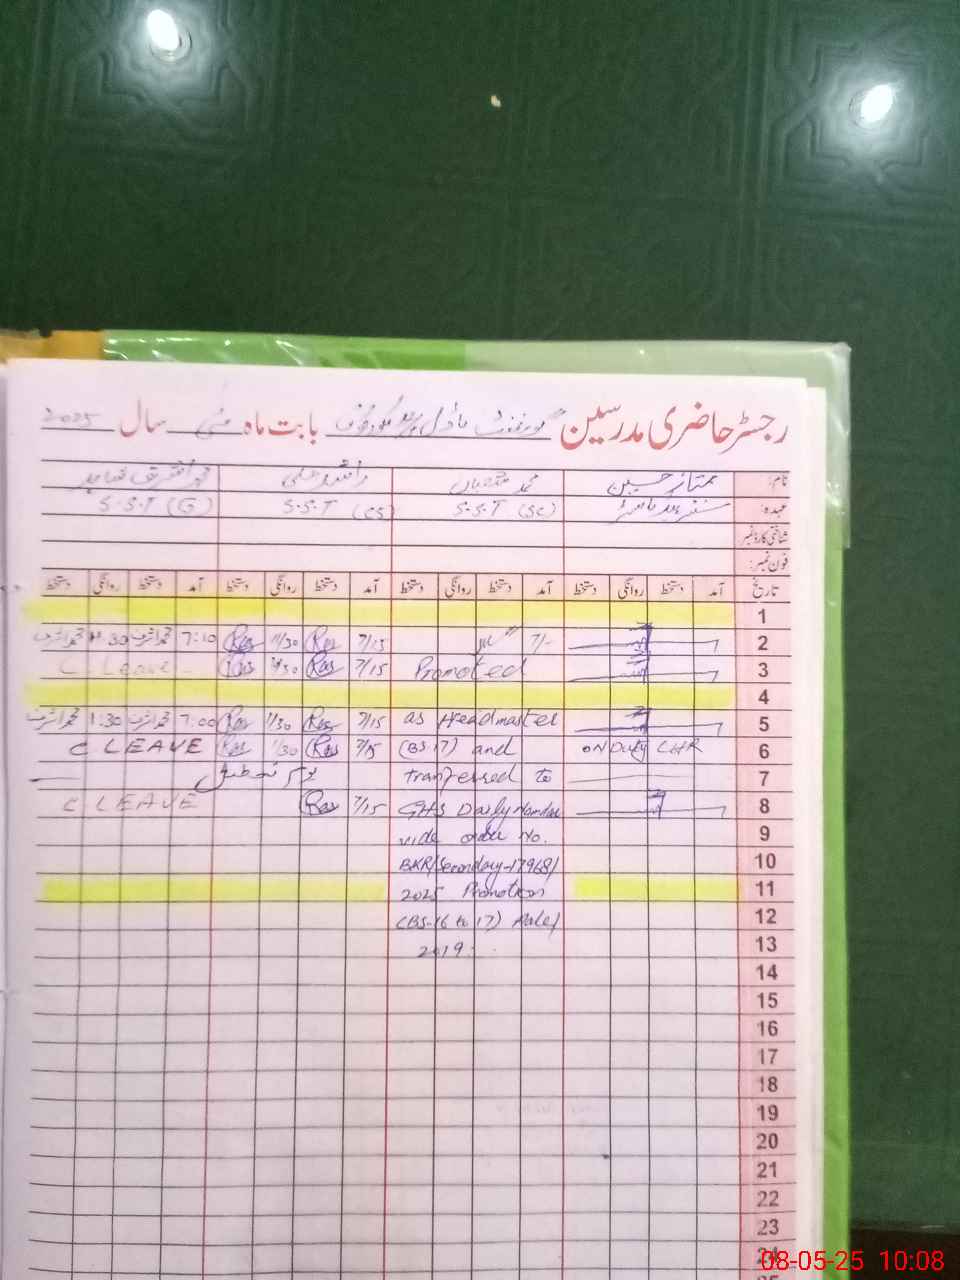 رجسٹر حاضری مدرسین گورنمنٹ ماڈل بابت ماہ مئی سال 2025
نام: ممتاز حسین محمد راشد علی محمد اشرف شاہد
عہدہ: S.S.T (SC) S.S.T (CS) S.S.T (G)
شناختی کارڈ نمبر:
فون نمبر:
تاریخ آمد دستخط روانگی دستخط آمد دستخط روانگی دستخط آمد دستخط روانگی دستخط آمد دستخط روانگی دستخط
1
2 7/- 7/15 Ras 1/30 Ras 7:10 محمد اشرف 1:30 محمد اشرف
3 Promoted 7/15 Ras 1/30 Ras C. Leave
4
5 as Headmaster 7/15 Ras 1/30 Ras 7:00 محمد اشرف 1:30 محمد اشرف
6 ON Duty LHR (BS-17) and 7/15 Ras 1/30 Ras C LEAVE
7 tranferred to یوم تعطیل
8 GHS Daily Namdar 7/15 Ras C LEAVE
9 vide order No.
10 BKR/Secondary-17968/
11 2025 Promotion
12 (BS-16 to 17) Male/
13 2019
14
15
16
17
18
19
20
21
22
23
24
08-05-25 10:08